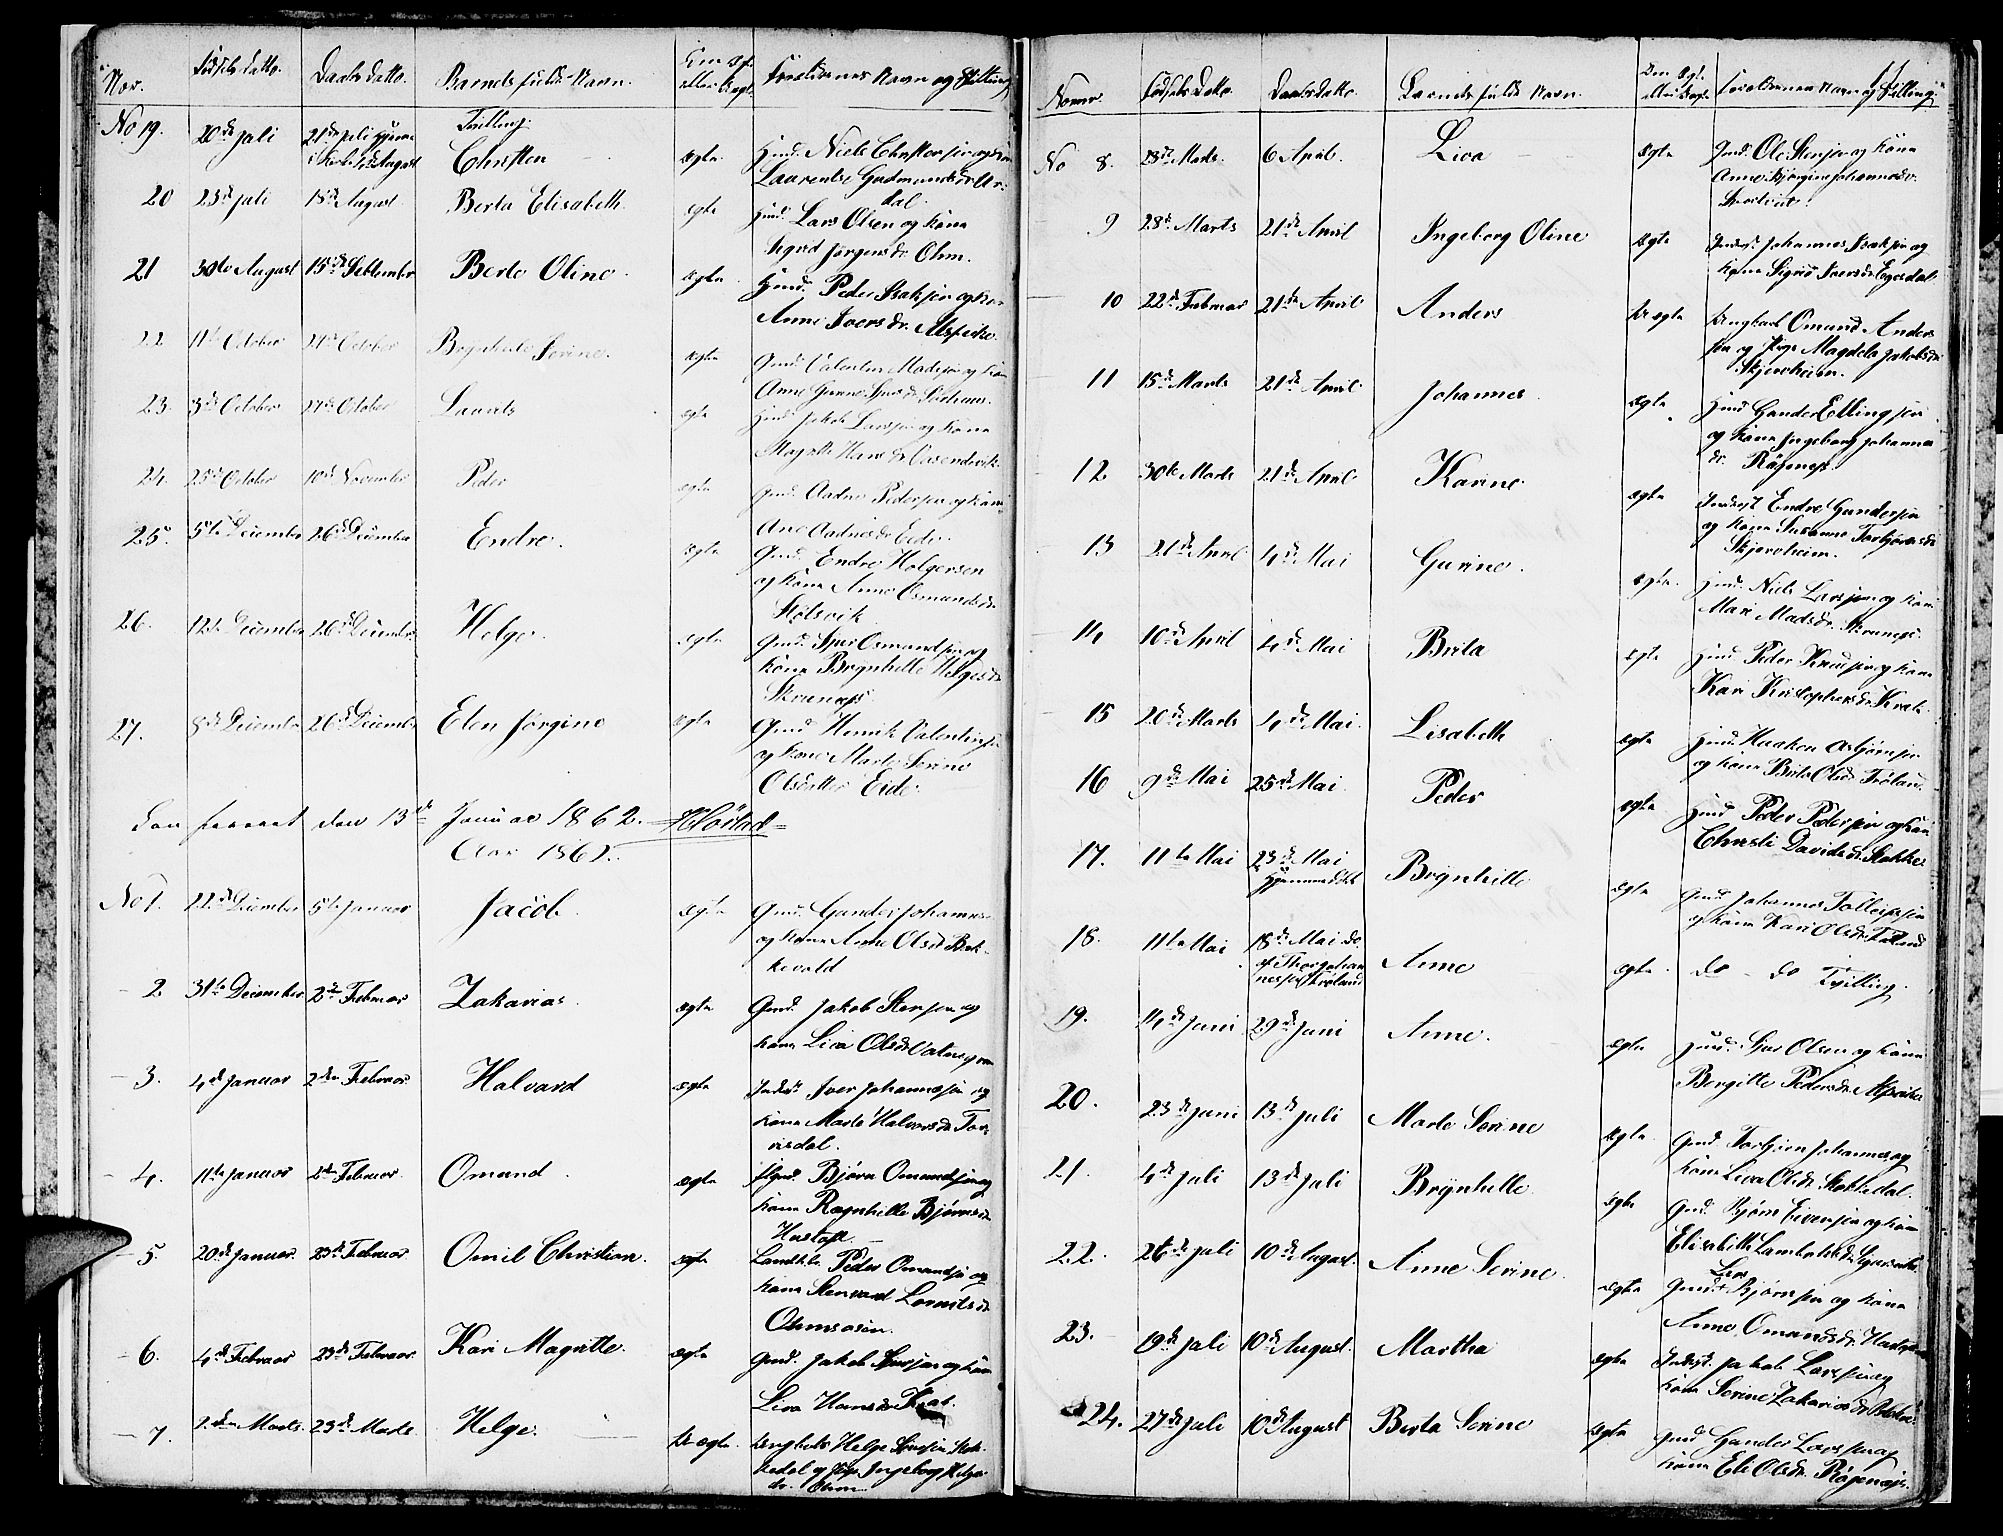 Nor. Fødsels datto. Daabs datto. Barnets fulde Navn. Om Ægte eller Uægte Forældrenes Navn og Stilling
No 19. 20de Juli 21de Juli hjem
i Kirk August Tvilling
Christen ægte Gmd. Niels Christensen og kone
Laurentse Gudmundsdr Ar-
dal.
20 23de Juli 18de August Berta Elisabeth ægte Gmd. Lars Olsen og kone
Sigrid Jørgensdr Ohm.
21 30te August 15de Septembr Berte Oline ægte Gmd. Peder Isaksen og kone
Anne Iversdr. Alsvike
22 11te October 27de October Brynhilte Serine ægte Gmd. Valentin Madssen og kone
Anne Gurine
23. 3de October 27de October Laurits ægte Gmd. Jakob Larsen og kone
Magrethe Hansdr Vasendvik
24. 25de October 10de November Peder ægte Gmd. Aadne Pedersen og kone
Ane Aadnesdr Eide.
25. 5te December 26de December Endre. ægte Gmd. Endre Holgersen
og kone Anne Osmundsdr
Stølsvik
26. 12te December 26de December Helge. ægte Gmd. Sjur Osmundsen og
kone Brynhilte Helgesdr
Skrunes
27. 8de December 26de December Elen Jørgine ægte Gmd. Henrik Valentinsen
og kone Marte Serine
Olsdatter Eide
den 13de Januar 1862. Høstad
Aar 1862.
No 1. 22de December 5te Januar Jacob. ægte Gmd. Gunder Johannes-
og kone Anne Olsdr Birk-
kevold
2. 31te December 2den Februar Zakarias. ægte Gmd. Jakob Stensen og
kone Liva Olsdr
3. 4de Januar 2den Februar Halvard ægte Inderst Iver Johannessen og
kone Marte Halvorsdr Tor-
visdal.
4. 11te Januar 2den Februar. Omund. ægte Gmd. Bjørn Omundsen og
kone Ragnhilte Bjørnsdr
Hustoft
5. 20de Januar. 23de Februar Omil Christian. ægte Landhdl. Peder Omundsen og
kone Stenvard Lauritsdr
Ohmsosen.
6. 4de Februar 23de Februar. Kari Magrette. ægte Gmd. Jakob Sjursen og kone
Liva Hansdr
7. 2den Marts. 23de Marts. Helge. Uægte. Ungkarl Helge
kedal og Pige Ingeborg Helge
dr. Ohm

Nommer. Fødsels Datto. Daabs datto. Barnets fulde Navn. Om Ægte eller Uægte Forældrenes Navn og Stilling.
No 8. 23de Marts. 6 April. Liva ægte Gmd. Ole Stensen og kone
Anne Bjørgine Johannesdr.
9 28de Marts 21de April Ingeborg Oline ægte Inderst. Johannes Isaksen og
kone Sigrid Iversdr Egesdal
10 22de Februar 21de April Anders Uægte Ungkarl Omund Anders
sen og Pige Magdela Jakobsdr
Skjervheim.
11 15de Marts 21de April Johannes. ægte Gmd. Gunder Ellingsen
og kone Ingeborg Johannes
dr. Røgenes.
12 30te Marts 21de April Karine ægte Inderst Endre Gundersen
og kone Susanne Torbjørnsdr
Skjervheim.
13 21de April 4de Mai Gurine. ægte. Gmd. Niels Larsen og kone
Mari Madsdr. Skrunes.
14 10de April 4de Mai Brita ægte Gmd Peder Knudsen og kone
Kari Kristophersdr
15 20de Marts 4de Mai. Lisabeth ægte Gmd. Haaken Asbjørnsen
og kone Brita Olsdr Frøland.
16 9de Mai 25de Mai. Peder ægte. Gmd Peder Pedersen og kone
Christi Davidsdr. Stokke.
17. 11te Mai 23de Mai
Hjemmedøbt Brynhilte ægte Gmd Johannes Tolleifsen
og kone Kari Olsdr
18. 11te Mai 18de Mai do
af Thor Johan
nessen Frøland Anne ægte. do - do Tvilling.
19. 14de Juni 29de Juni Anne. ægte Gmd. Sjur Olsen og kone
Bergitte Pedersdr Alsviker
20. 23de Juni 13de Juli Marte Serine ægte Gmd. Torbjørn Johannes og
kone Liva Olsdr. Stokkedal.
21. 4de Juli 13de Juli Brynhille ægte Gmd. Bjørn Eivensen og kone
Elisabeth Lambertsdr
22. 26de Juli 10de August. Anne Serine. ægte Gmd. Lars Bjørnsen og kone
Anne Omundsdr.
23. 19de Juli 10de August. Martha ægte Inderst. Jakob Larssen og
kone Serine Zakariasdr
24. 27de Juli 10de August Berta Serine ægte Gmd Gunder Larssen og
kone Eli Olsdr. Røgenes.